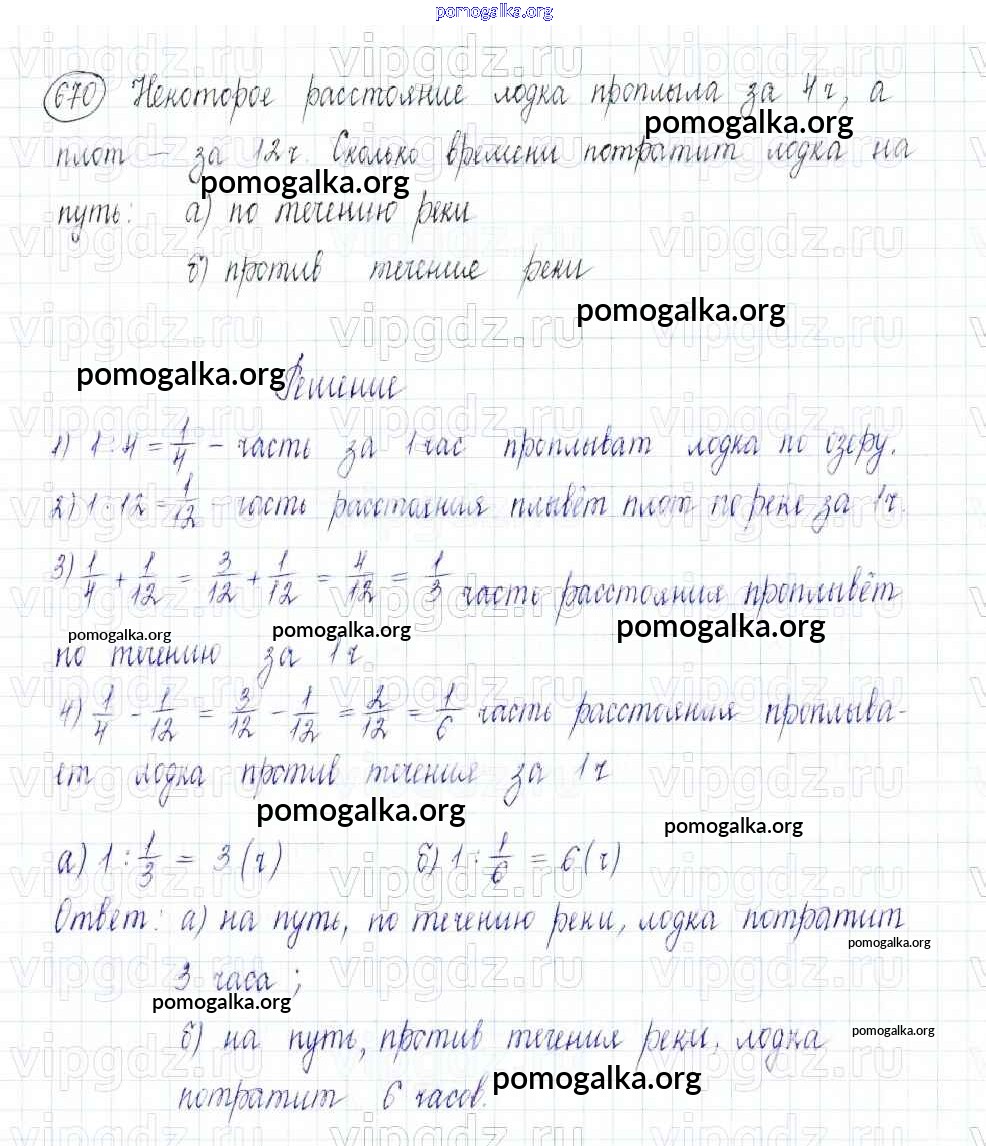 pomogalka.org
670 Некоторое расстояние лодка проплыла за 4 ч, а
pomogalka.org
плот – за 12 ч. Сколько времени потратит лодка на
pomogalka.org
путь: а) по течению реки
б) против течение реки
pomogalka.org
pomogalka.org
Решение
1) 1 : 4 = 1/4 – часть за 1 час проплыват лодка по озеру.
2) 1 : 12 = 1/12 – часть расстояния плывёт плот по реке за 1 ч.
3) 1/4 + 1/12 = 3/12 + 1/12 = 4/12 = 1/3 часть расстояния проплывёт
pomogalka.org pomogalka.org pomogalka.org
по течению за 1 ч
4) 1/4 - 1/12 = 3/12 - 1/12 = 2/12 = 1/6 часть расстояния проплыва-
ет лодка против течения за 1 ч
pomogalka.org pomogalka.org
а) 1 : 1/3 = 3 (ч) б) 1 : 1/6 = 6 (ч)
Ответ: а) на путь, по течению реки, лодка потратит
pomogalka.org
3 часа ;
pomogalka.org
б) на путь, против течения реки, лодка
pomogalka.org
потратит 6 часов.
pomogalka.org
vipgdz.ru